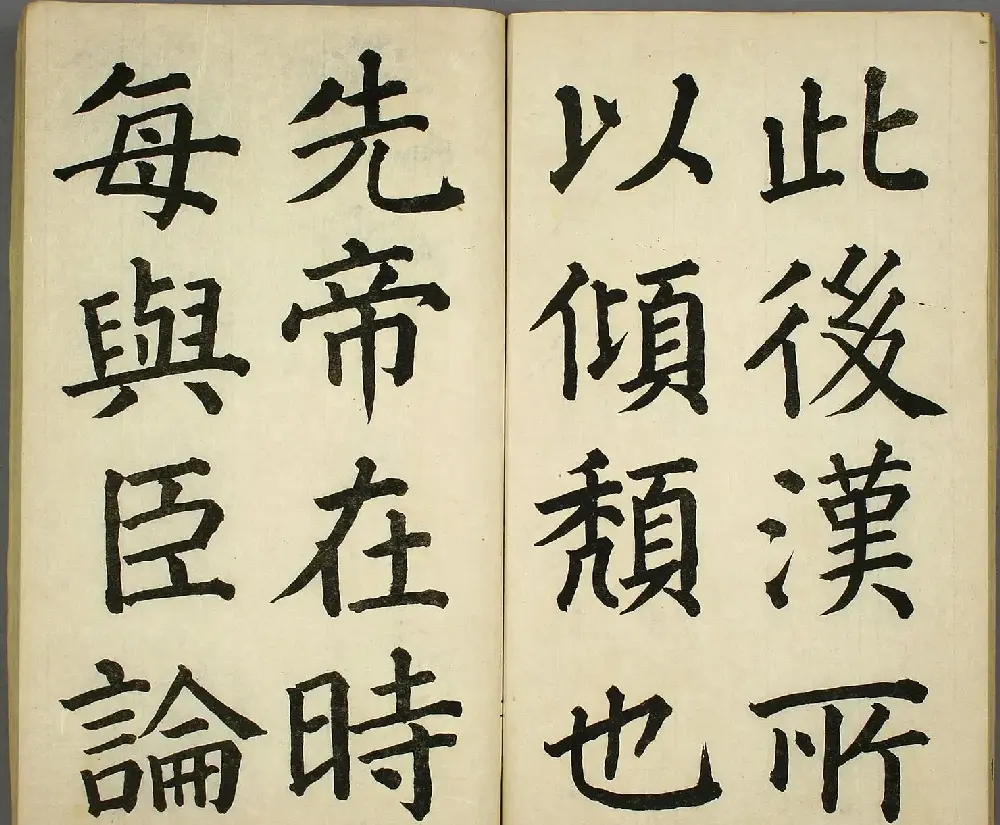 此後漢所
以傾頹也
先帝在時
每與臣論